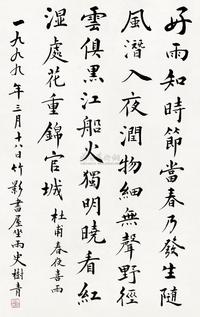 好雨知時節當春乃發生隨
風潛入夜潤物細無聲野徑
雲俱黑江船火獨明曉看紅
濕處花重錦官城 杜甫春夜喜雨
一九九九年三月十八日竹影書屋坐雨史樹青